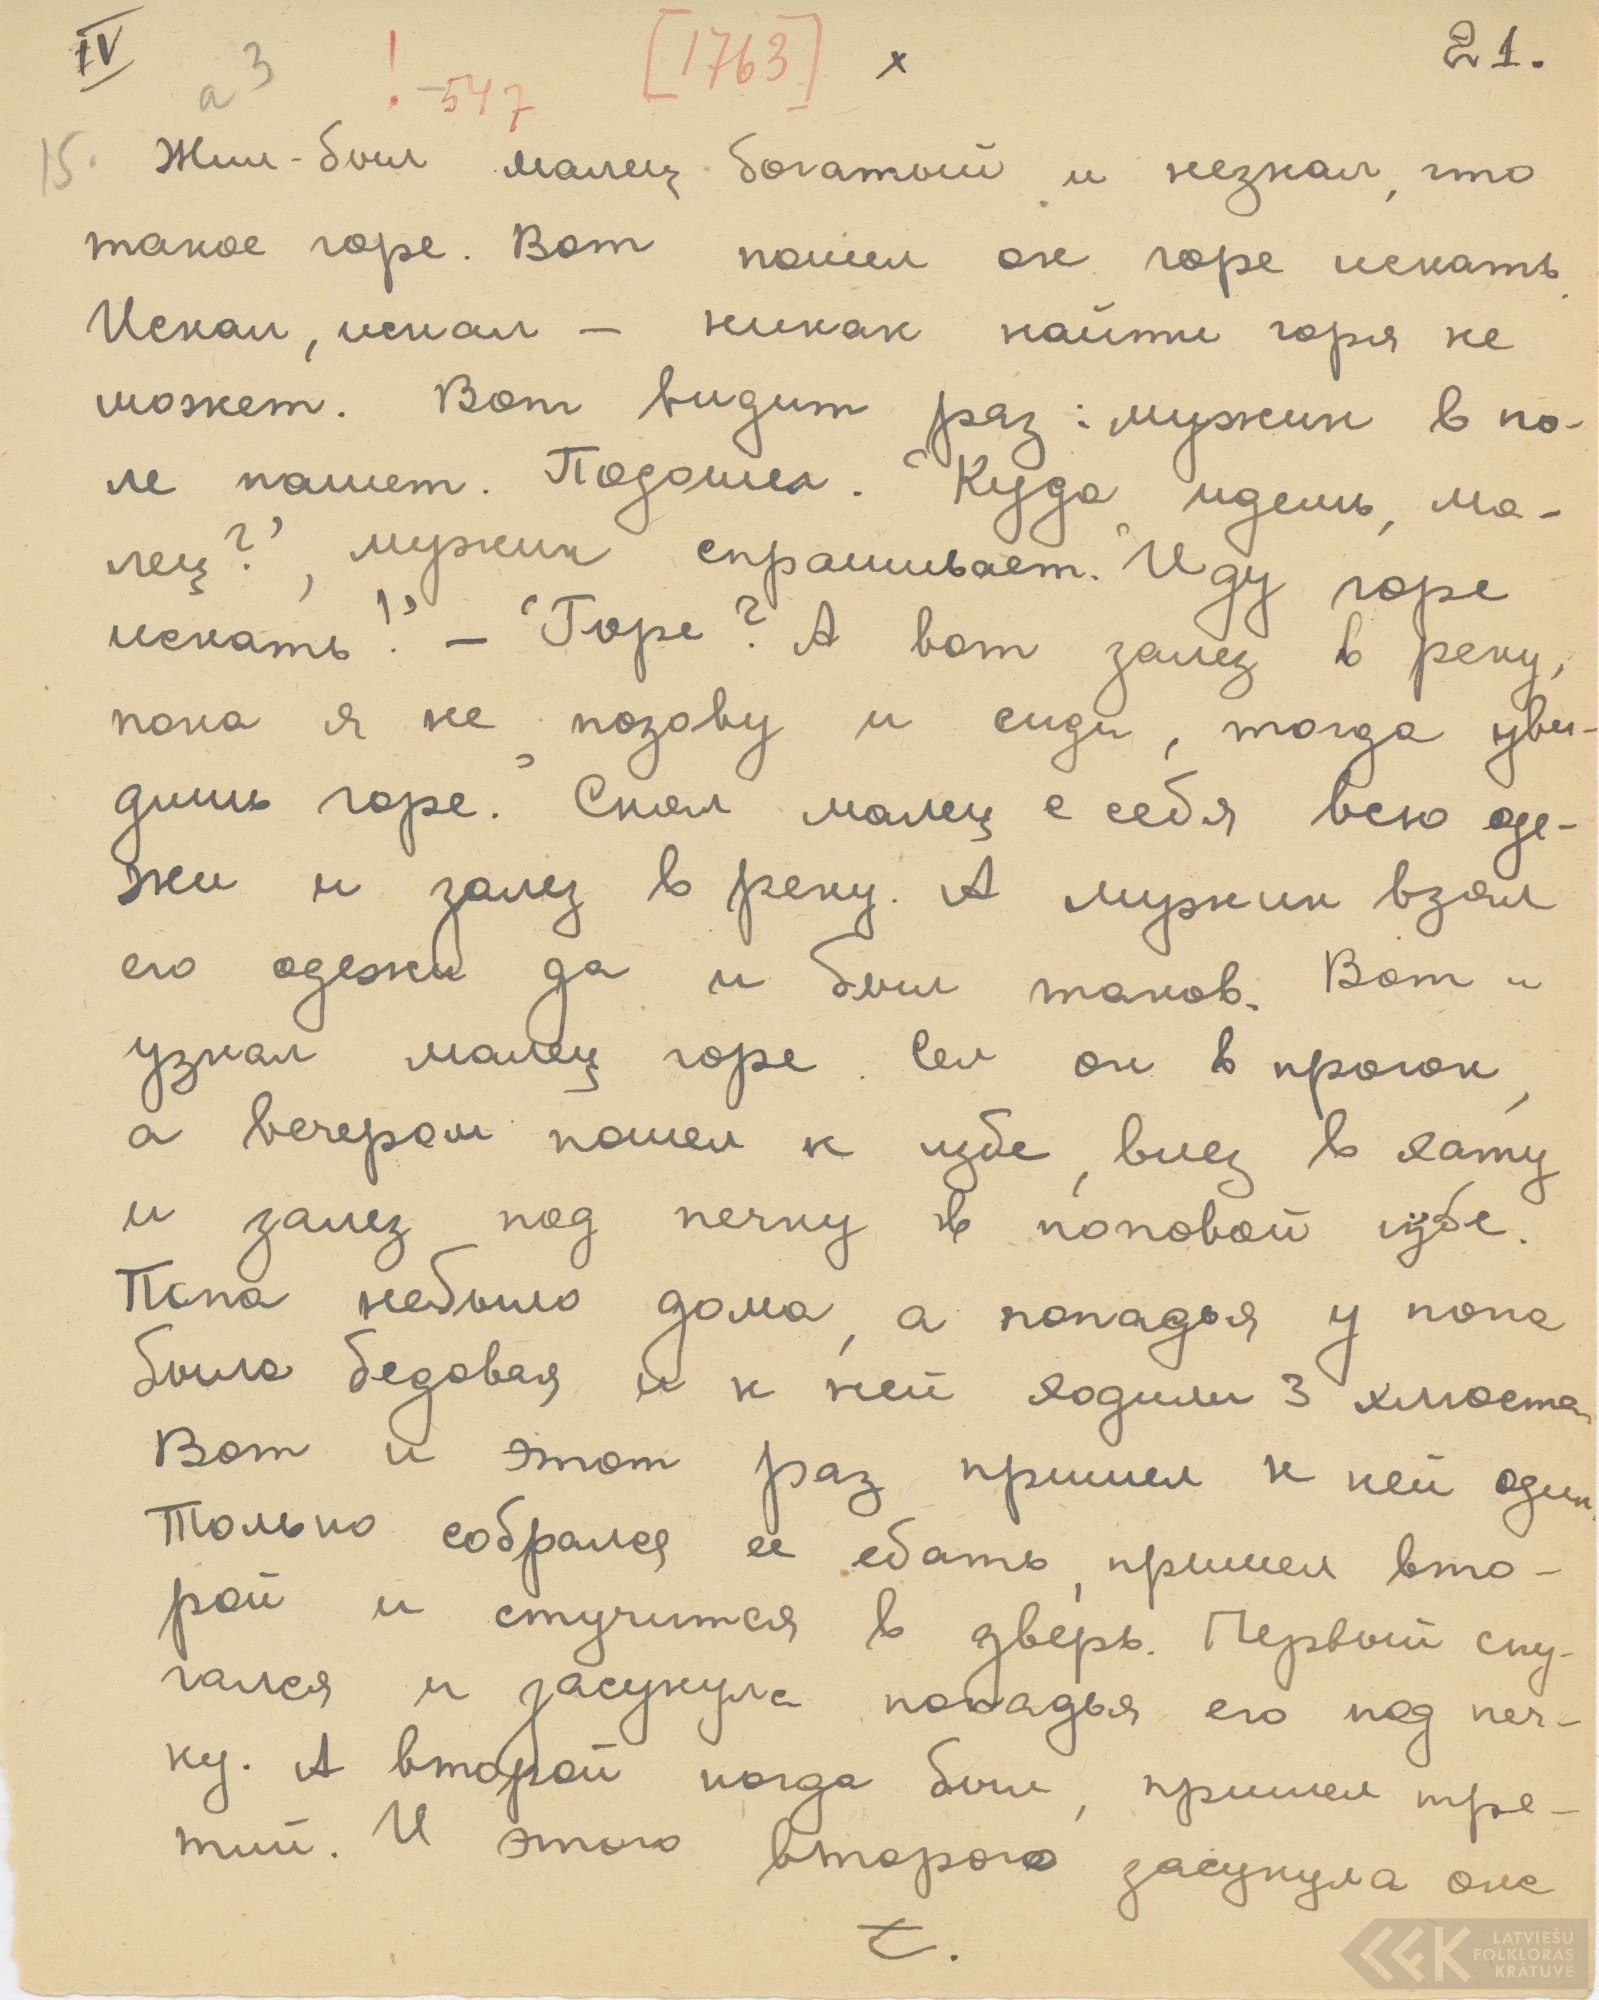 IV a 3 ! -547 [1763] x 21.
15. Жил-был малец богатый и незнал, что
такое горе. Вот пошел он горе искать.
Искал, искал – никак найти горя не
может. Вот видит раз: мужик в по-
ле пашет. Подошел. "Куда идешь, ма-
лец?", мужик спрашивает. "Иду горе
искать!" – "Горе? А вот залез в реку,
пока я не позову и сиди, тогда уви-
дишь горе." Снял малец с себя всю оде-
жи и залез в реку. А мужик взял
его одежи да и был таков. Вот и
узнал малец горе. Сел он в прогон,
а вечером пошел к избе, влез в хату
и залез под печку в поповой избе.
Попа небыло дома, а попадья у попа
была бедовая и к ней ходили 3 хлюста.
Вот и этот раз пришел к ней один.
Только собрался ее ебать, пришел вто-
рой и стучится в дверь. Первый спу-
гался и засунула попадья его под печ-
ку. А второй когда был, пришел тре-
тий. И этого второго засунула она
t.
LATVIEŠU
FOLKLORAS
KRĀTUVE